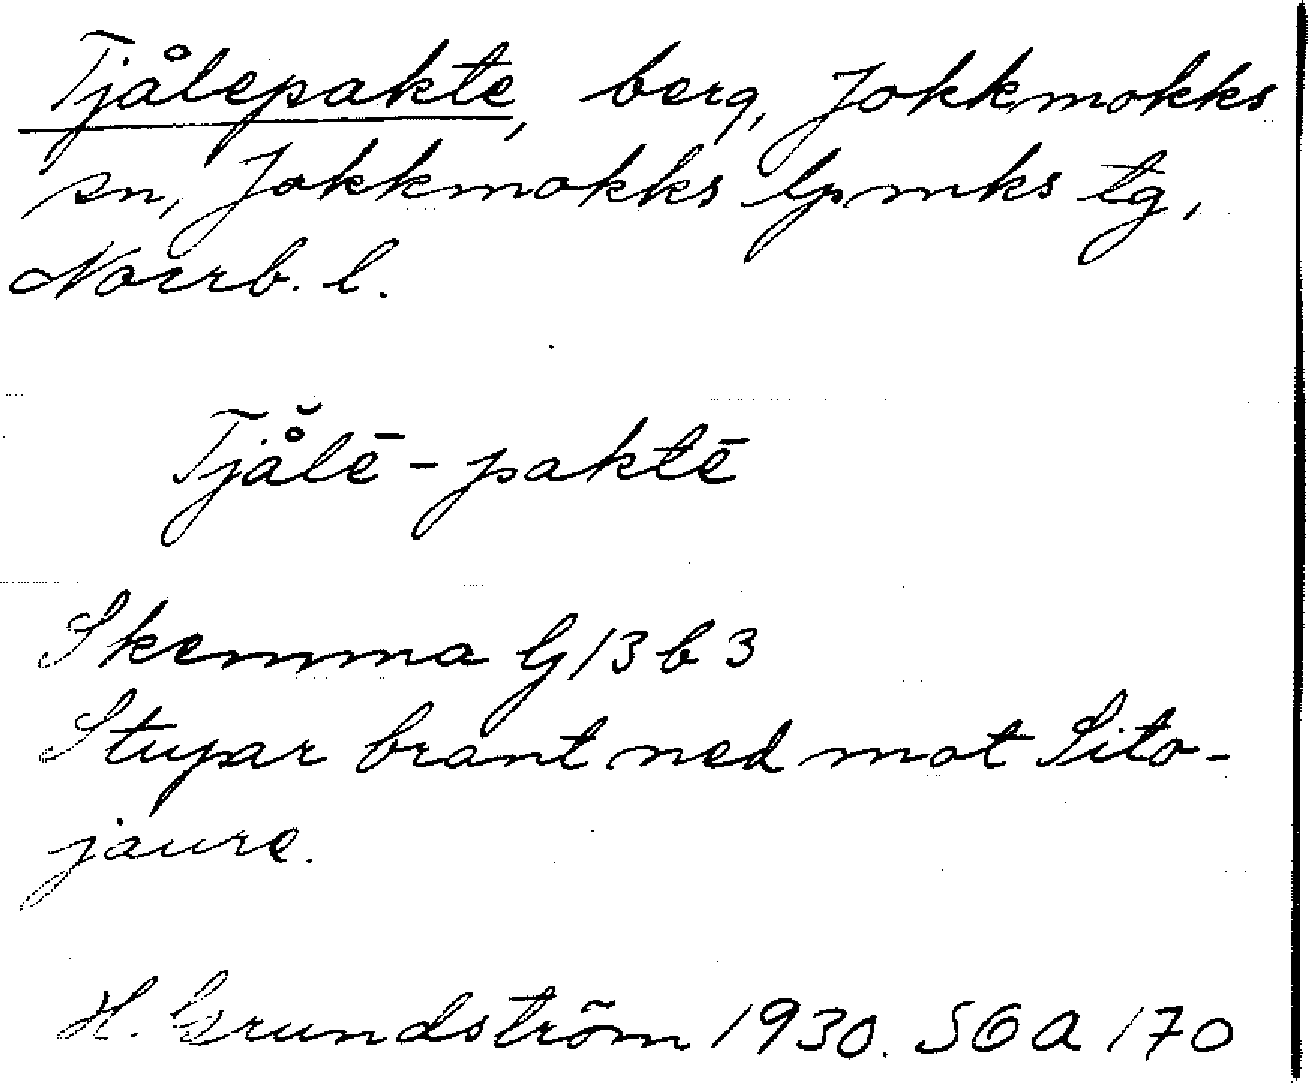 Tjålepakte, berg, Jokkmokks
sn, Jokkmokks lpmks tg,
Norrb. l.
Tjå̆lē-paktē
Skemma G 13 b 3
Stupar brant ned mot Sito-
jaure.
H. Grundström 1930. SOA 170